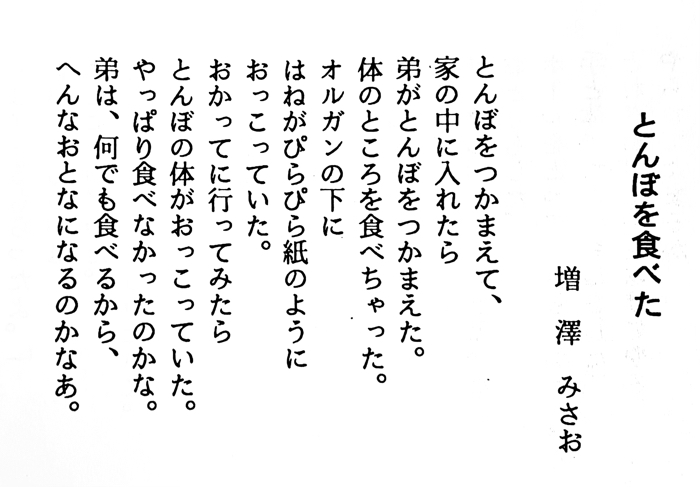 とんぼを食べた
増澤 みさお
とんぼをつかまえて、
家の中に入れたら
弟がとんぼをつかまえた。
体のところを食べちゃった。
オルガンの下に
はねがぴらぴら紙のように
おっこっていた。
おかってに行ってみたら
とんぼの体がおっこっていた。
やっぱり食べなかったのかな。
弟は、何でも食べるから、
へんなおとなになるのかなあ。